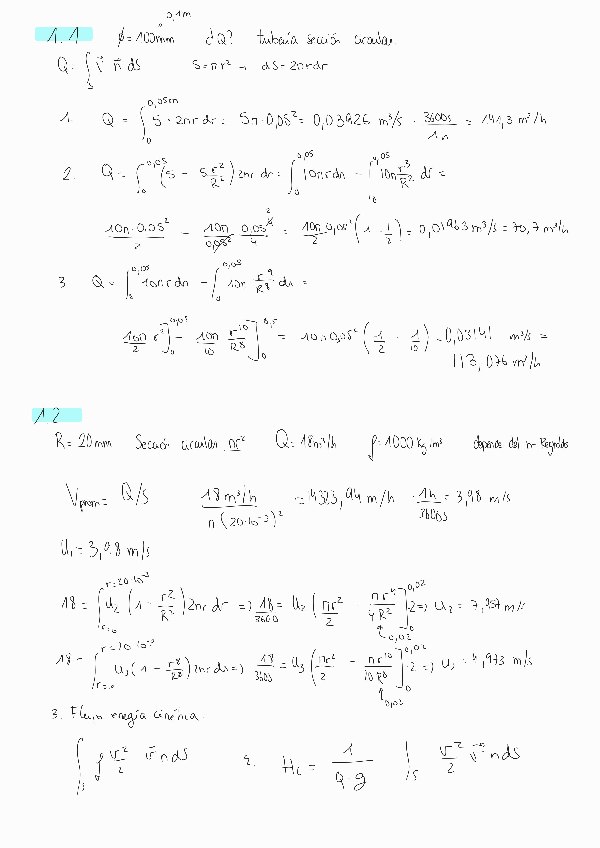 0,1m
1.1 ϕ=100mm ¿Q? tubería sección circular.
Q = ∫_S v⃗ n⃗ dS S=πr² → dS=2πrdr
1. Q = ∫_0^{0,05m} 5·2πr dr = 5π·0,05² = 0,03926 m³/s · 3600s/1h = 141,3 m³/h
2. Q = ∫_0^{0,05} (5 - 5 r²/R²) 2πr dr = ∫_0^{0,05} 10πr dr - ∫_0^{0,05} 10π r³/R² dr =
10π·0,05²/2 - 10π/0,05² 0,05⁴/4 = 10π 0,05²/2 (1 - 1/2) = 0,01963 m³/s = 70,7 m³/h
3. Q = ∫_0^{0,05} 10πr dr - ∫_0^{0,05} 10π r⁹/R⁸ dr =
10π/2 r²]_0^{0,05} - 10π/10 r¹⁰/R⁸]_0^{0,5} = 10π·0,05² (1/2 - 1/10) = 0,03141 m³/s =
113,076 m³/h
1.2
R=20mm Sección circular πr² Q=18m³/h ρ=1000 kg/m³ depende del nº Reynolds
V_prom = Q/S 18m³/h / π(20·10⁻³)² = 14323,94 m/h · 1h/3600s = 3,98 m/s
U₁=3,98 m/s
18 = ∫_{r=0}^{r=20·10⁻³} U₂ (1 - r²/R²) 2πr dr => 18/3600 = U₂ (πr²/2 - πr⁴/4R²)]_0^{0,02} ·2 => U₂ = 7,957 m/s
0,02
18 = ∫_{r=0}^{r=20·10⁻³} U₃ (1 - r⁸/R⁸) 2πr dr => 18/3600 = U₃ (πr²/2 - πr¹⁰/10R⁸)]_0^{0,02} ·2 => U₃ = 4,973 m/s
0,02
3. Flujo energía cinética.
∫_S ρ v²/2 v⃗ n dS 4. H_c = 1/Qg ∫_S v²/2 v⃗ n dS